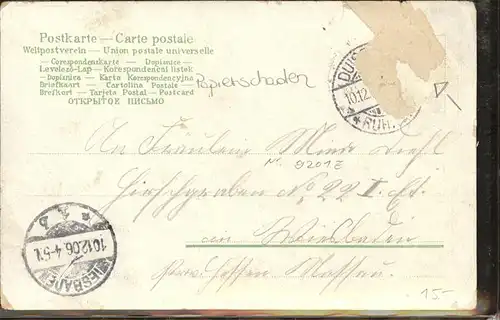 Postkarte — Carte postale
Weltpostverein — Union postale universelle
— Correspondenzkarte — Dopisnice —
Levelező-Lap — Korespondenční listek
— Dopisnica — Karta Korrespondencyjna
Briefkaart — Cartolina Postale —
Brefkort — Tarjeta Postal — Postcard
ОТКРЫТОЕ ПИСЬМО
Papierschaden
DUIS
10.12
*RUH.
An Fräulein Minna Diehl
Nr. 9201E
Hirschgraben No 22 I. Et.
in Wiesbaden
Prov. Hessen Nassau.
WIESBADEN
10.12.06.4-5N.
* 1 b
15-